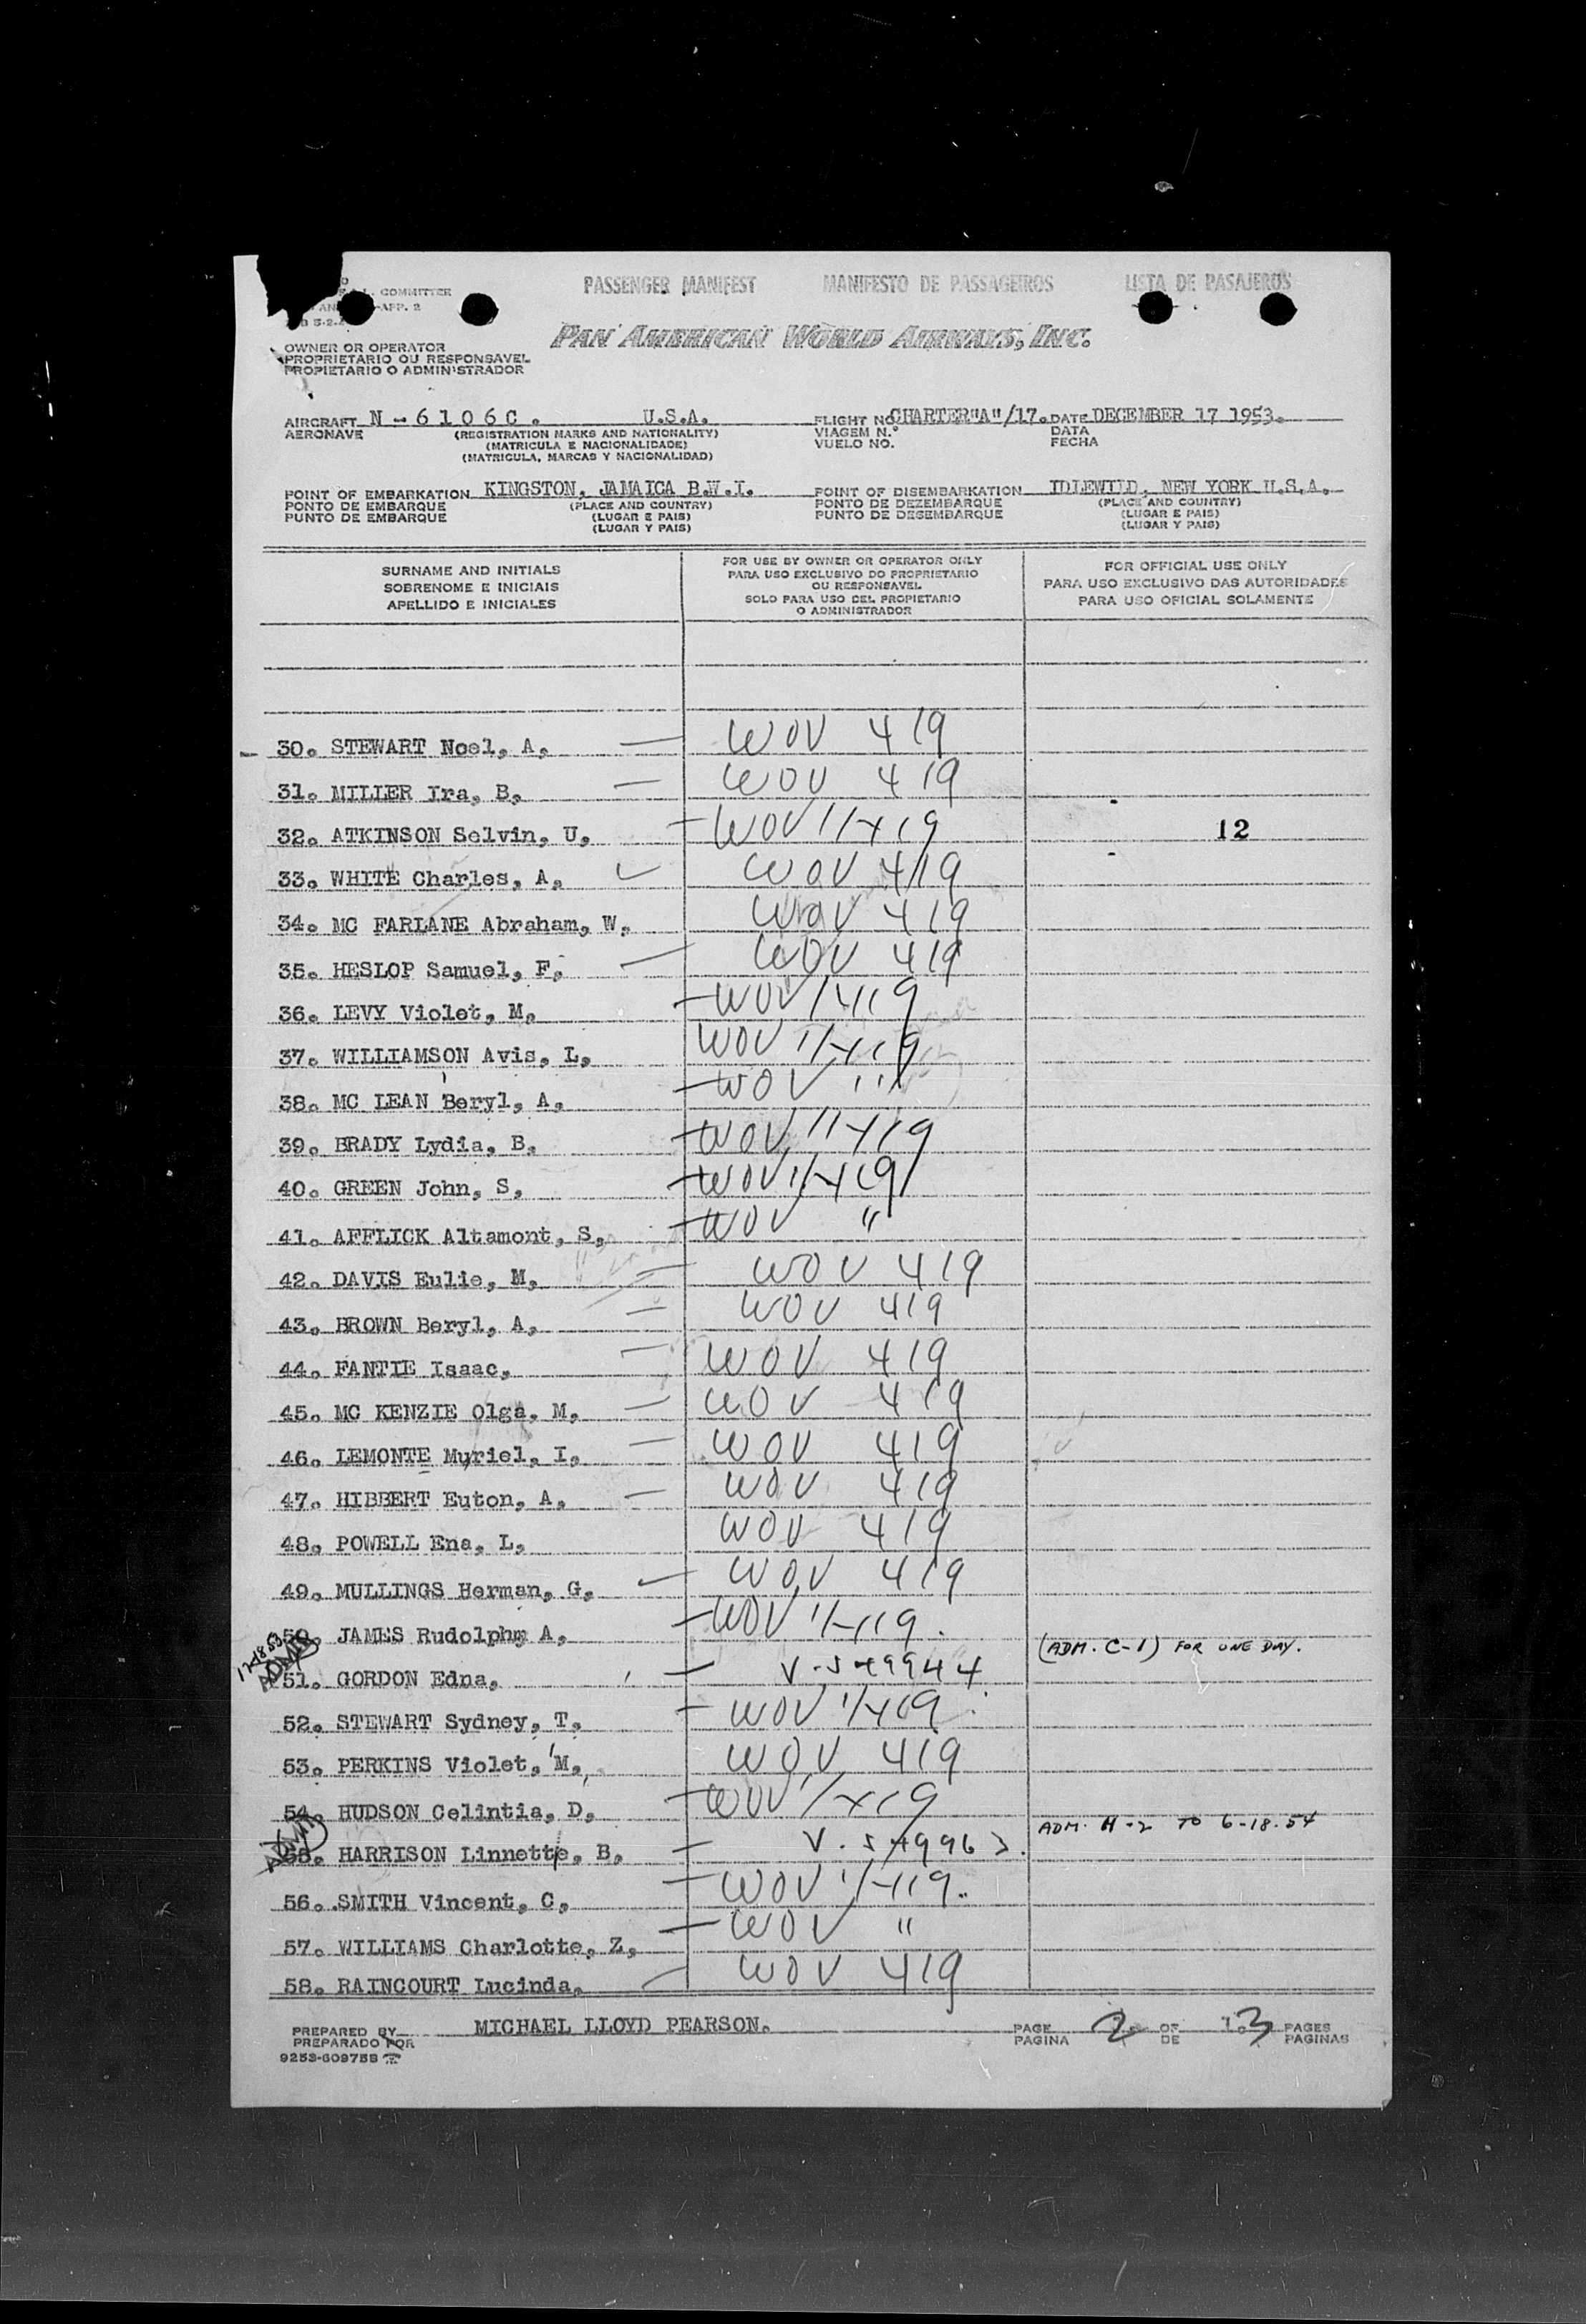 PASSENGER MANIFEST MANIFESTO DE PASSAGEIROS LISTA DE PASAJEROS
COMMITTEE
-APP. 2
PAN AMERICAN WORLD AIRWAYS, INC.
OWNER OR OPERATOR
PROPRIETARIO OU RESPONSAVEL
PROPIETARIO O ADMINISTRADOR
AIRCRAFT N-6106C. U.S.A. FLIGHT NO. CHARTER"A"/17. DATE DECEMBER 17 1953.
AERONAVE (REGISTRATION MARKS AND NATIONALITY) VIAGEM N.º DATA
(MATRICULA E NACIONALIDADE) VUELO NO. FECHA
(MATRICULA, MARCAS Y NACIONALIDAD)
POINT OF EMBARKATION KINGSTON, JAMAICA B.W.I. POINT OF DISEMBARKATION IDLEWILD, NEW YORK U.S.A.
PONTO DE EMBARQUE (PLACE AND COUNTRY) PONTO DE DEZEMBARQUE (PLACE AND COUNTRY)
PUNTO DE EMBARQUE (LUGAR E PAIS) PUNTO DE DESEMBARQUE (LUGAR E PAIS)
(LUGAR Y PAIS) (LUGAR Y PAIS)
SURNAME AND INITIALS
SOBRENOME E INICIAIS
APELLIDO E INICIALES
FOR USE BY OWNER OR OPERATOR ONLY
PARA USO EXCLUSIVO DO PROPRIETARIO
OU RESPONSAVEL
SOLO PARA USO DEL PROPIETARIO
O ADMINISTRADOR
FOR OFFICIAL USE ONLY
PARA USO EXCLUSIVO DAS AUTORIDADES
PARA USO OFICIAL SOLAMENTE
30. STEWART Noel, A, WOV 419
31. MILLER Ira, B, WOV 419
32. ATKINSON Selvin, U, WOV 11/419 12
33. WHITE Charles, A, WOV 419
34. MC FARLANE Abraham, W, WOV 419
35. HESLOP Samuel, F, WOV 419
36. LEVY Violet, M, WOV 1/419
37. WILLIAMSON Avis, L, WOV 11/419
38. MC LEAN Beryl, A, WOV "
39. BRADY Lydia, B, WOV 11/419
40. GREEN John, S, WOV 11/419
41. AFFLICK Altamont, S, WOV "
42. DAVIS Eulie, M, WOV 419
43. BROWN Beryl, A, WOV 419
44. FANTIE Isaac, WOV 419
45. MC KENZIE Olga, M, WOV 419
46. LEMONTE Muriel, I, WOV 419
47. HIBBERT Euton, A, WOV 419
48. POWELL Ena, L, WOV 419
49. MULLINGS Herman, G, WOV 419
50. JAMES Rudolph, A, WOV 11/419.
(ADM. C-1) FOR ONE DAY.
51. GORDON Edna, V.549944
52. STEWART Sydney, T, WOV 11/419.
53. PERKINS Violet, M, WOV 419
54. HUDSON Celintia, D, WOV 1/419
ADM. H-2 TO 6-18.54
55. HARRISON Linnette, B, V.549963.
56. SMITH Vincent, C, WOV 11/419.
57. WILLIAMS Charlotte, Z, WOV "
58. RAINCOURT Lucinda, WOV 419
PREPARED BY MICHAEL LLOYD PEARSON. PAGE 2 OF 3 PAGES
PREPARADO POR PAGINA DE PAGINAS
9253-609758